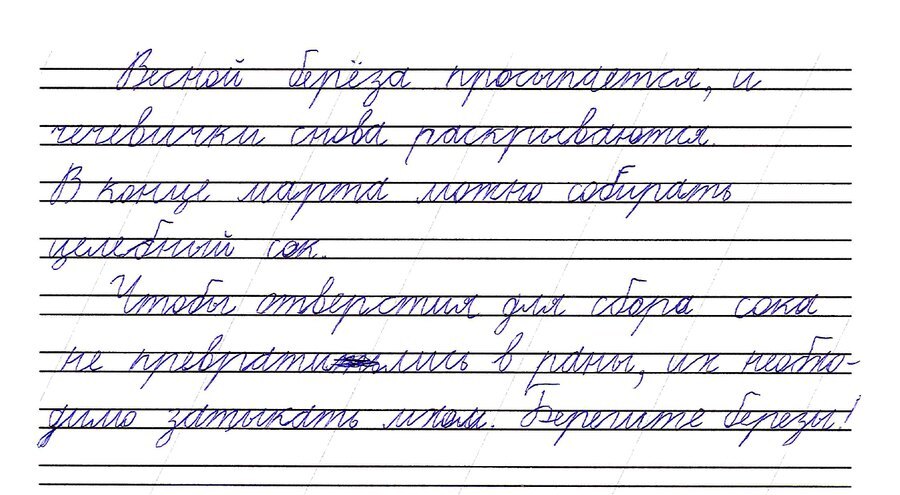 Весной берёза просыпается, и
чечевички снова раскрываются.
В конце марта можно собирать
целебный сок.
Чтобы отверстия для сбора сока
не превратились в раны, их необхо-
димо затыкать мхом. Берегите березы!